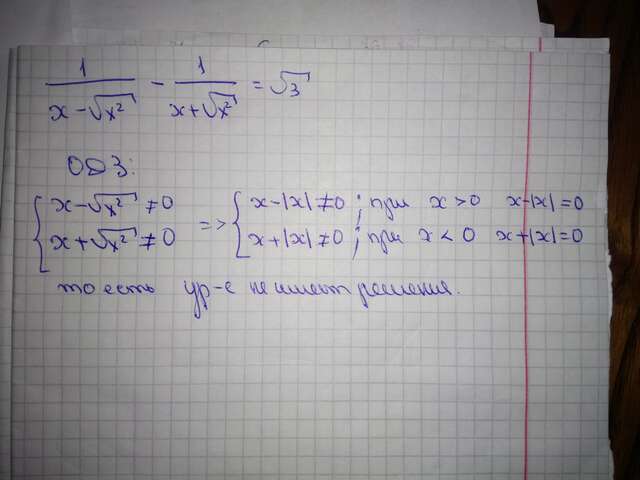 1/(x-√x²) - 1/(x+√x²) = √3
ОДЗ:
{ x-√x² ≠0 => { x-|x| ≠0 ; при x>0 x-|x|=0
{ x+√x² ≠0 { x+|x| ≠0 ; при x<0 x+|x|=0
то есть ур-е не имеет решения.